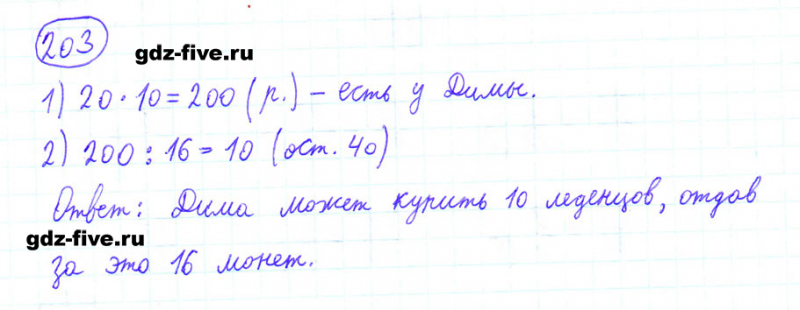 203
gdz-five.ru
1) 20 · 10 = 200 (р.) – есть у Димы.
2) 200 : 16 = 10 (ост. 40)
Ответ: Дима может купить 10 леденцов, отдав
gdz-five.ru
за это 16 монет.